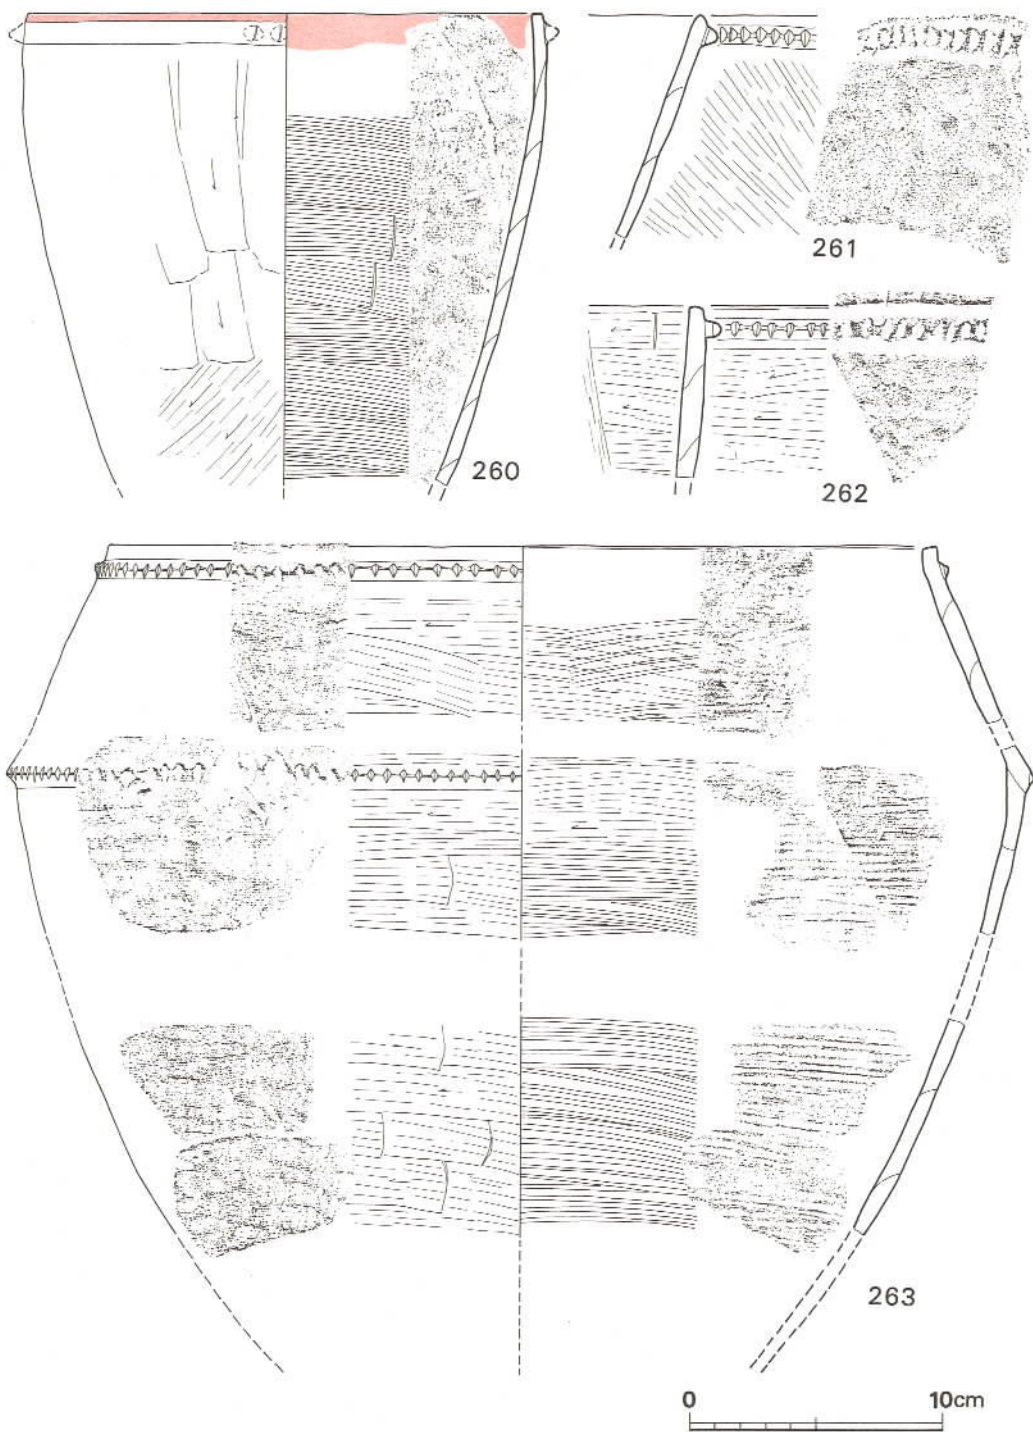 260
261
262
263
0 10cm